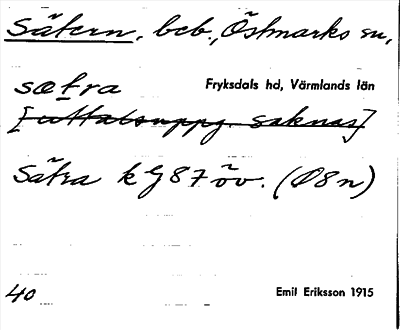 Sätern, beb., Östmarks sn,
sætra Fryksdals hd, Värmlands län
[uttalsuppg. saknas]
Sätra kG87 öv. (Ø8n)
40 Emil Eriksson 1915